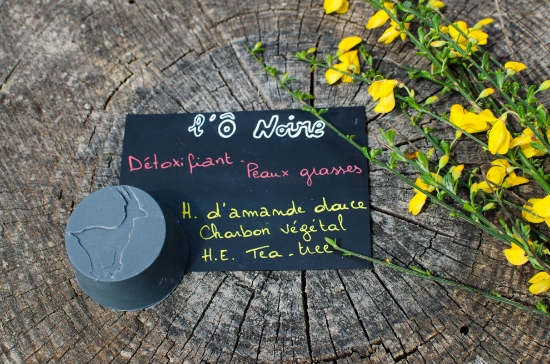 l'Ô Noire
Détoxifiant - Peaux grasses
H. d'amande douce
Charbon végétal
H.E. Tea-tree